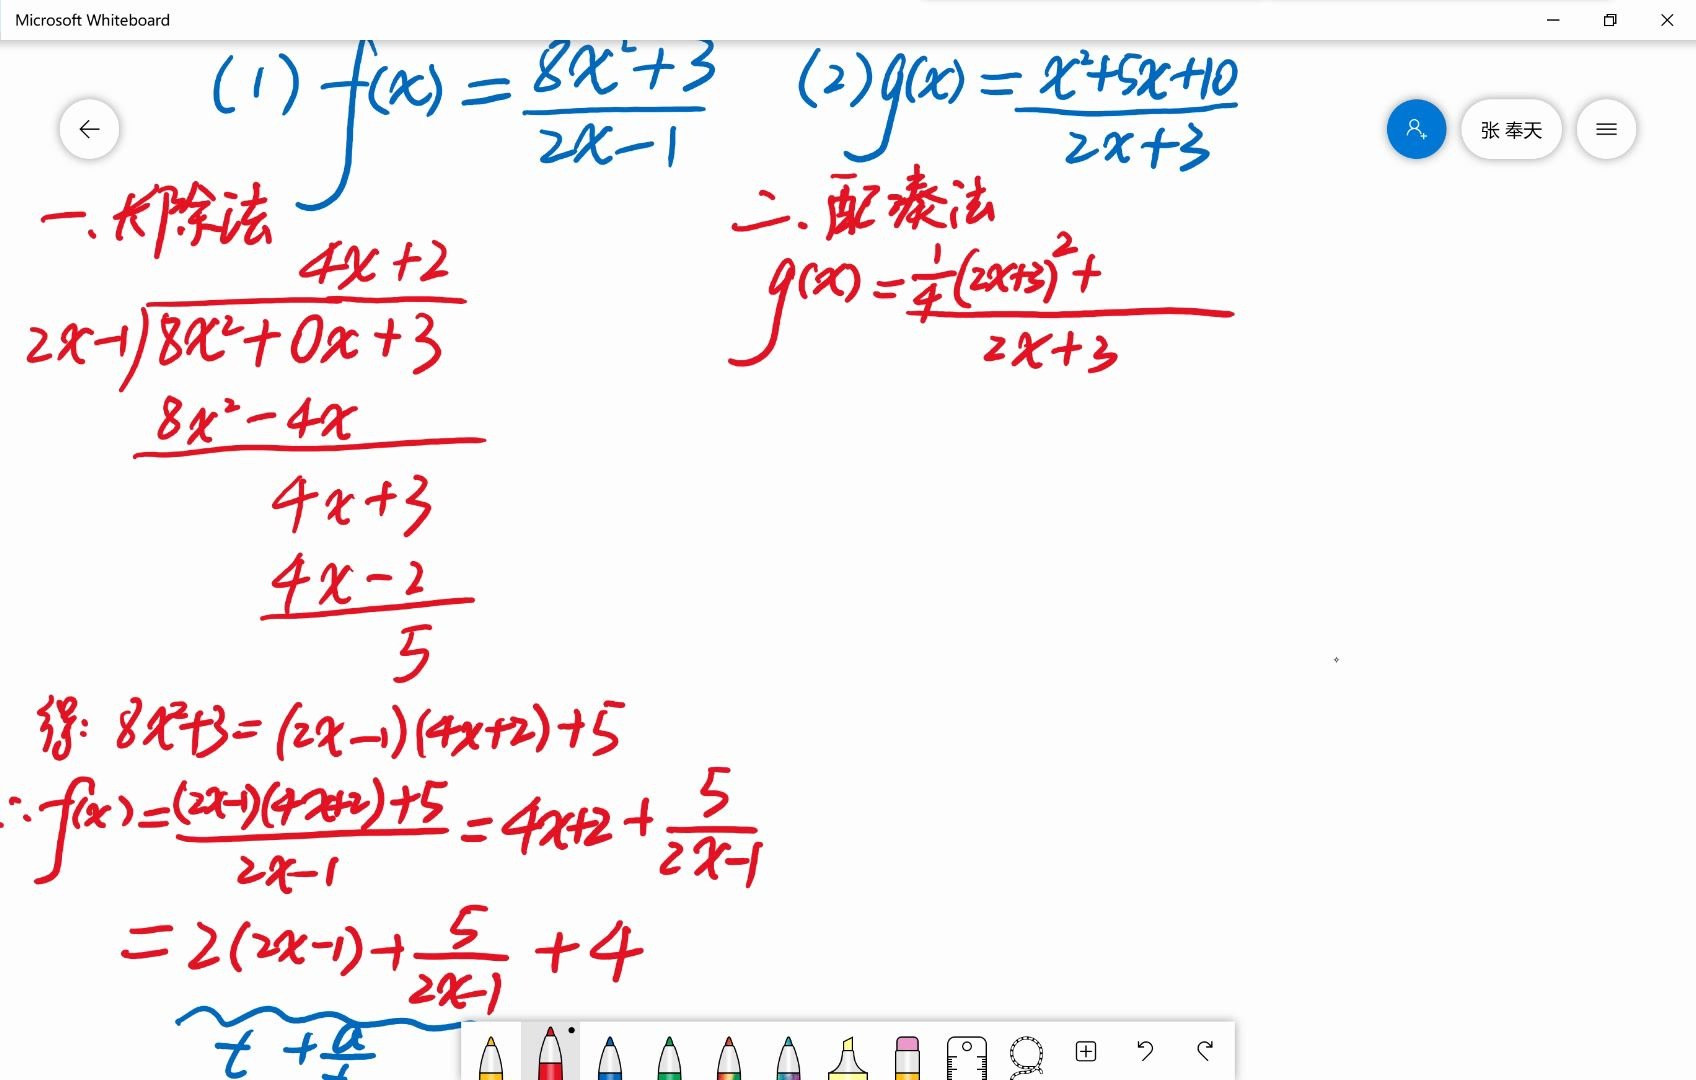 Microsoft Whiteboard
(1) f(x) = (8x²+3)/(2x-1) (2) g(x) = (x²+5x+10)/(2x+3)
张 奉天
一、长除法
4x+2
2x-1)8x²+0x+3
8x²-4x
4x+3
4x-2
5
得: 8x²+3=(2x-1)(4x+2)+5
∴f(x)=((2x-1)(4x+2)+5)/(2x-1)=4x+2+5/(2x-1)
=2(2x-1)+5/(2x-1)+4
t+a/t
二、配凑法
g(x)=(1/4(2x+3)²+)/(2x+3)